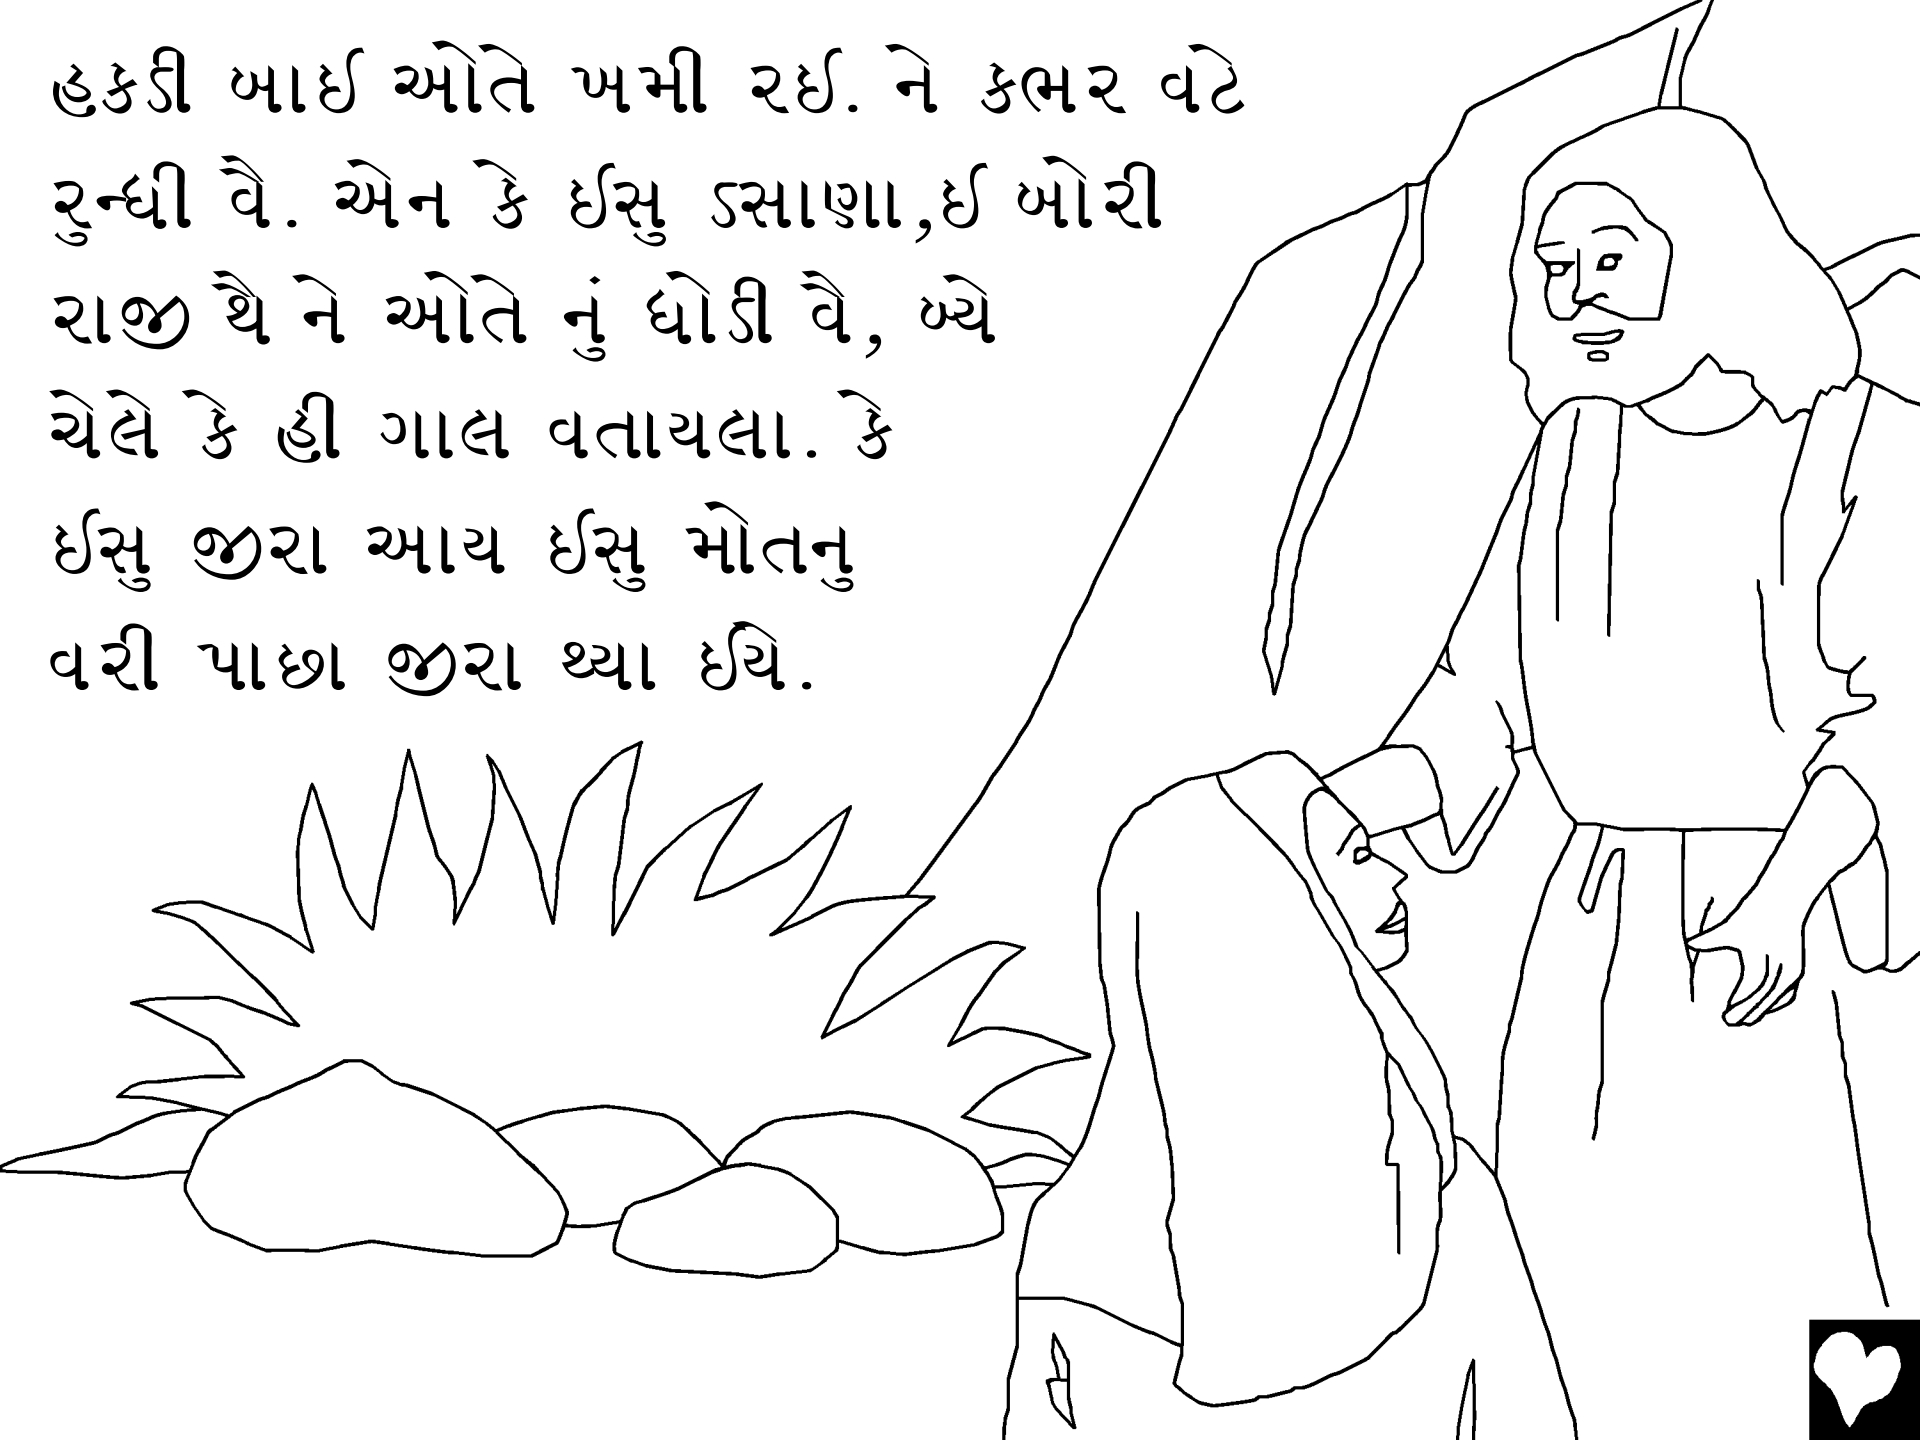 હકડી બાઈ ઓતે ખમી રઈ. ને કભર વટે
રુન્ધી વૈ. એન કે ઈસુ ડસાણા,ઈ બોરી
રાજી થૈ ને ઓતે નું ધોડી વૈ, બ્યે
ચેલે કે હી ગાલ વતાયલા. કે
ઈસુ જીરા આય ઈસુ મોતનુ
વરી પાછા જીરા થ્યા ઈયે.